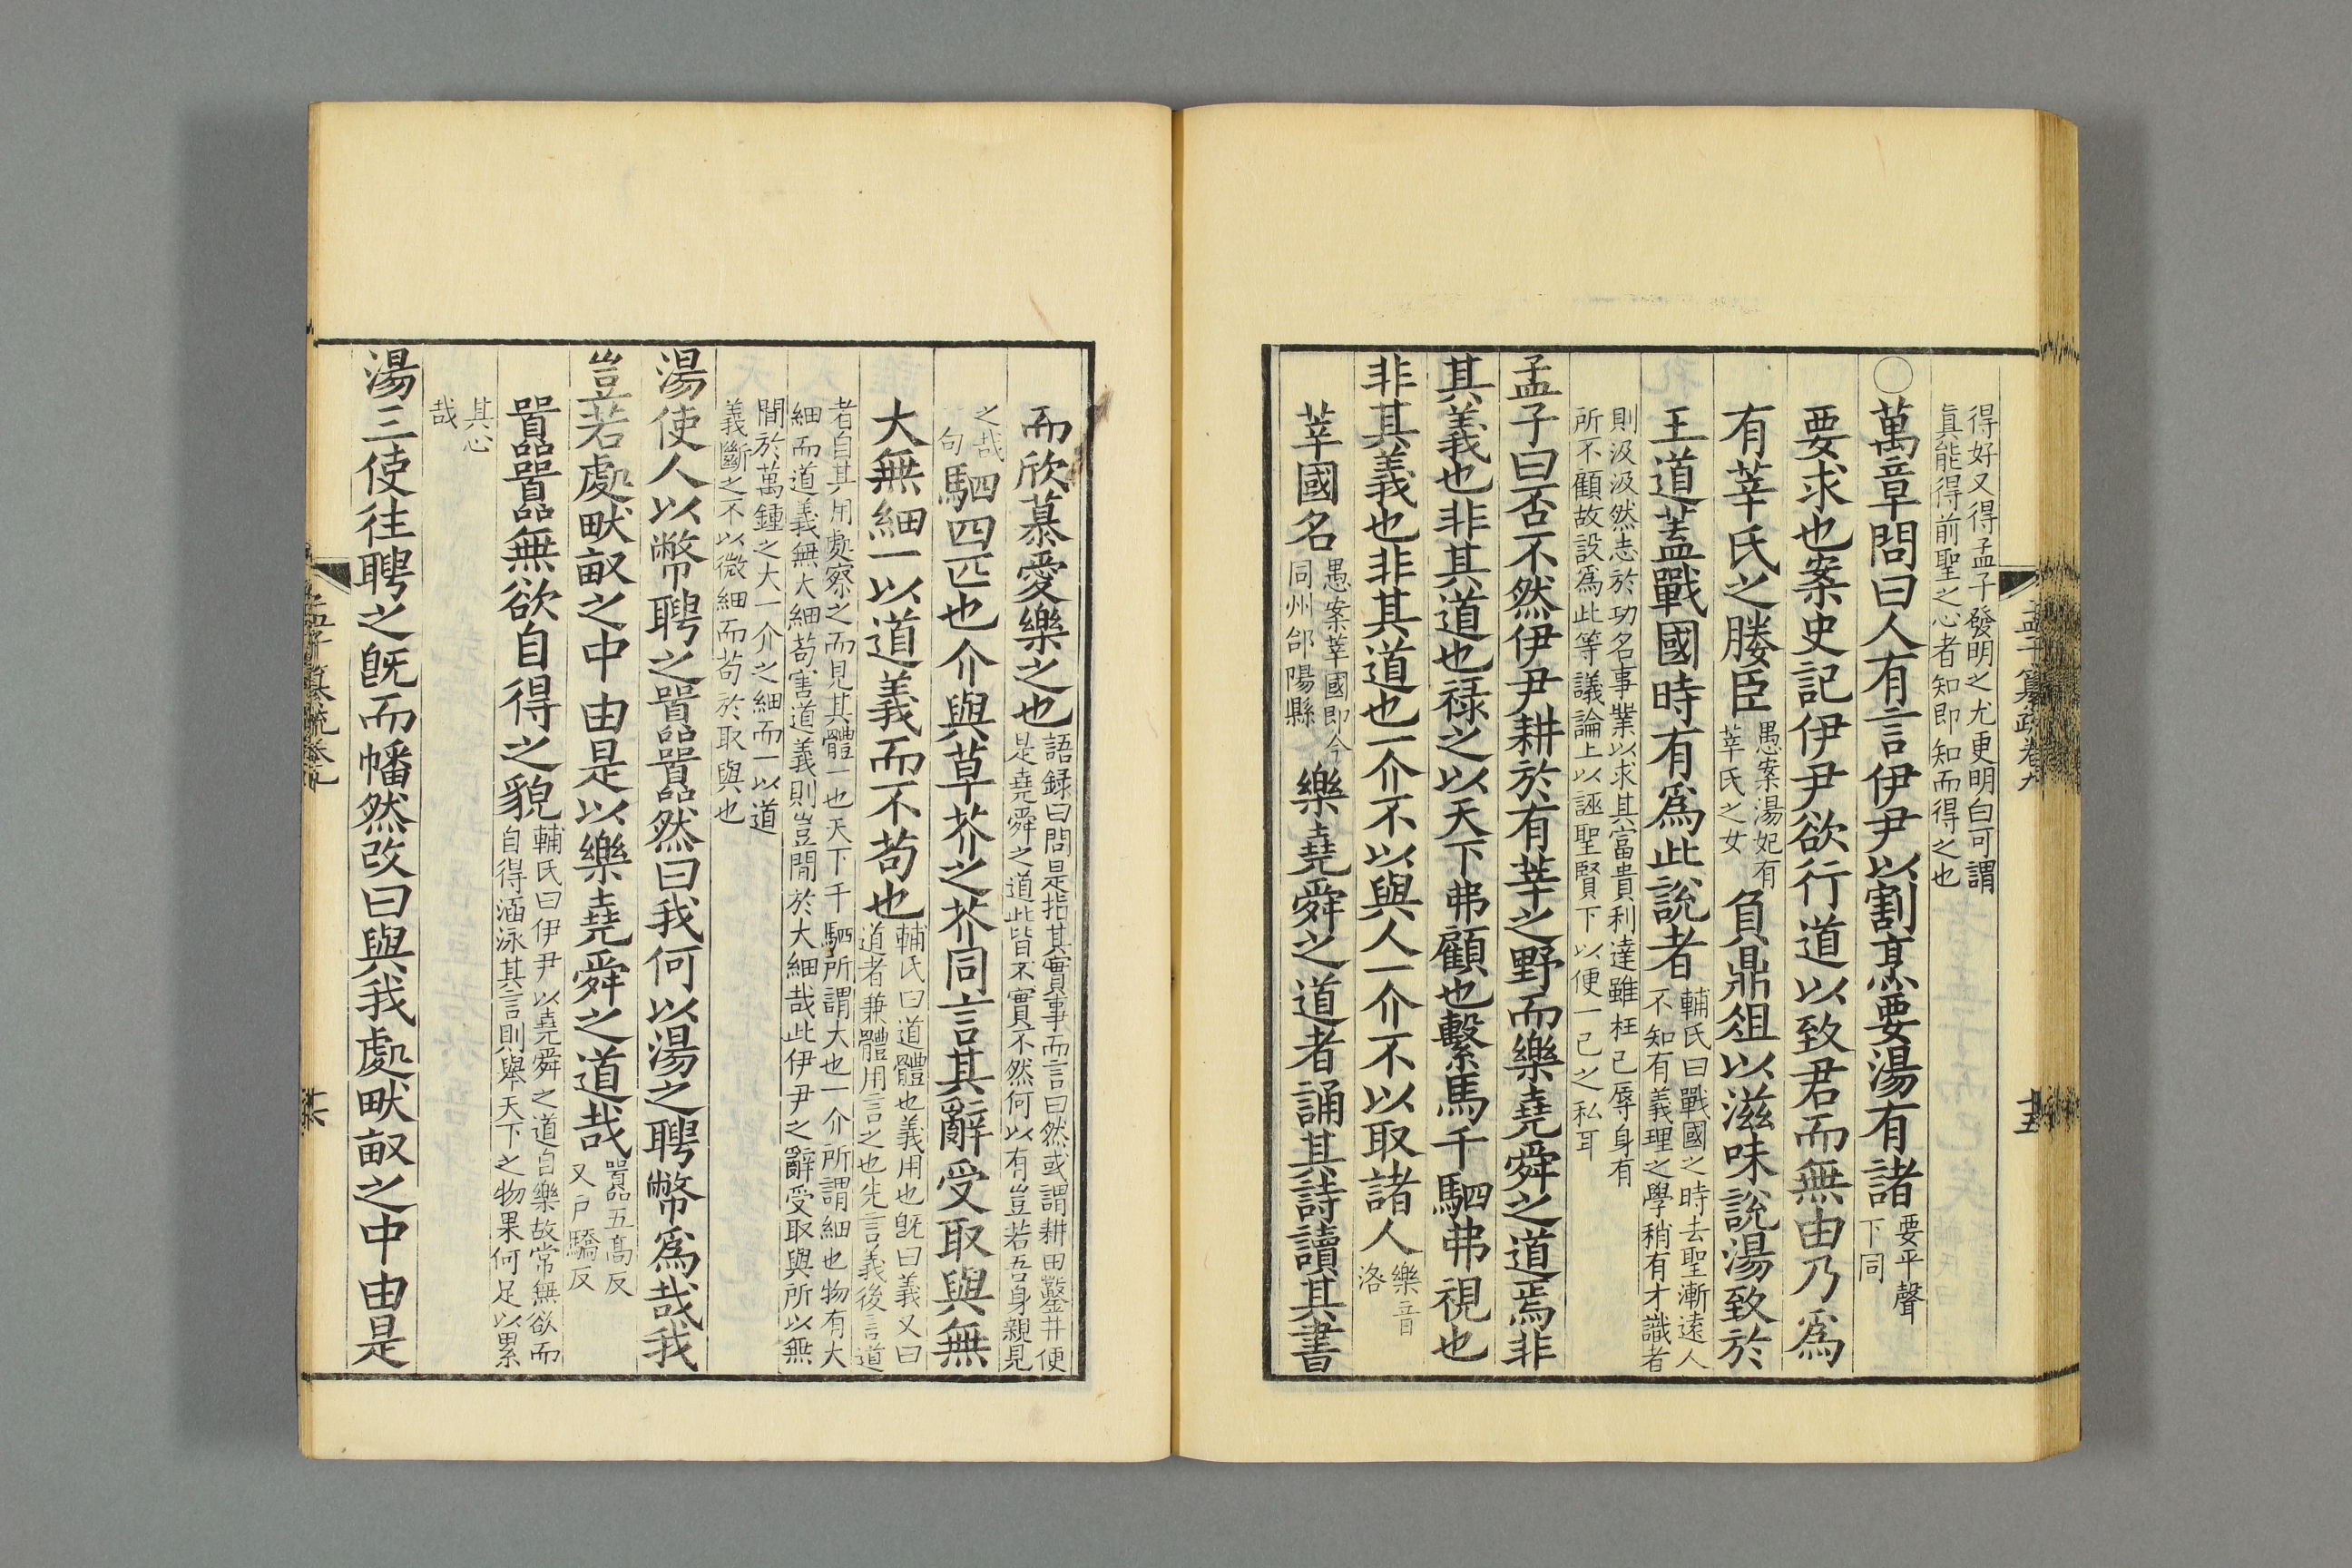 孟子纂疏卷九
十五
得好又得孟子發明之尤更明白可謂
真能得前聖之心者知即知而得之也
○萬章問曰人有言伊尹以割烹要湯有諸
要平聲
下同
要求也案史記伊尹欲行道以致君而無由乃爲
有莘氏之媵臣
愚案湯妃有
莘氏之女
負鼎俎以滋味說湯致於
王道蓋戰國時有爲此說者
輔氏曰戰國之時去聖漸遠人
不知有義理之學稍有才識者
則汲汲然志於功名事業以求其富貴利達雖枉己辱身有
所不顧故設爲此等議論上以誣聖賢下以便一己之私耳
孟子曰否不然伊尹耕於有莘之野而樂堯舜之道焉非
其義也非其道也禄之以天下弗顧也繫馬千駟弗視也
非其義也非其道也一介不以與人一介不以取諸人
樂音
洛
莘國名
愚案莘國即今
同州郃陽縣
樂堯舜之道者誦其詩讀其書
而欣慕愛樂之也
語録曰問是指其實事而言曰然或謂耕田鑿井便
是堯舜之道此皆不實不然何以有豈若吾身親見
之哉
句
駟四匹也介與草芥之芥同言其辭受取與無
大無細一以道義而不苟也
輔氏曰道體也義用也旣曰義又曰
道者兼體用言之也先言義後言道
者自其用處察之而見其體一也天下千駟所謂大也一介所謂細也物有大
細而道義無大細苟害道義則豈間於大細哉此伊尹之辭受取與所以無
間於萬鍾之大一介之細而一以道
義斷之不以微細而苟於取與也
湯使人以幣聘之囂囂然曰我何以湯之聘幣爲哉我
豈若處畎畝之中由是以樂堯舜之道哉
囂五高反
又戶驕反
囂囂無欲自得之貌
輔氏曰伊尹以堯舜之道自樂故常無欲而
自得涵泳其言則舉天下之物果何足以累
其心
哉
湯三使往聘之旣而幡然改曰與我處畎畝之中由是
孟子纂疏卷九
十六